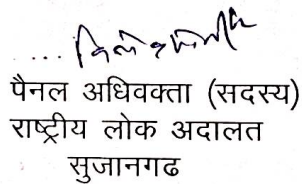 ....
पैनल अधिवक्ता (सदस्य)
राष्ट्रीय लोक अदालत
सुजानगढ